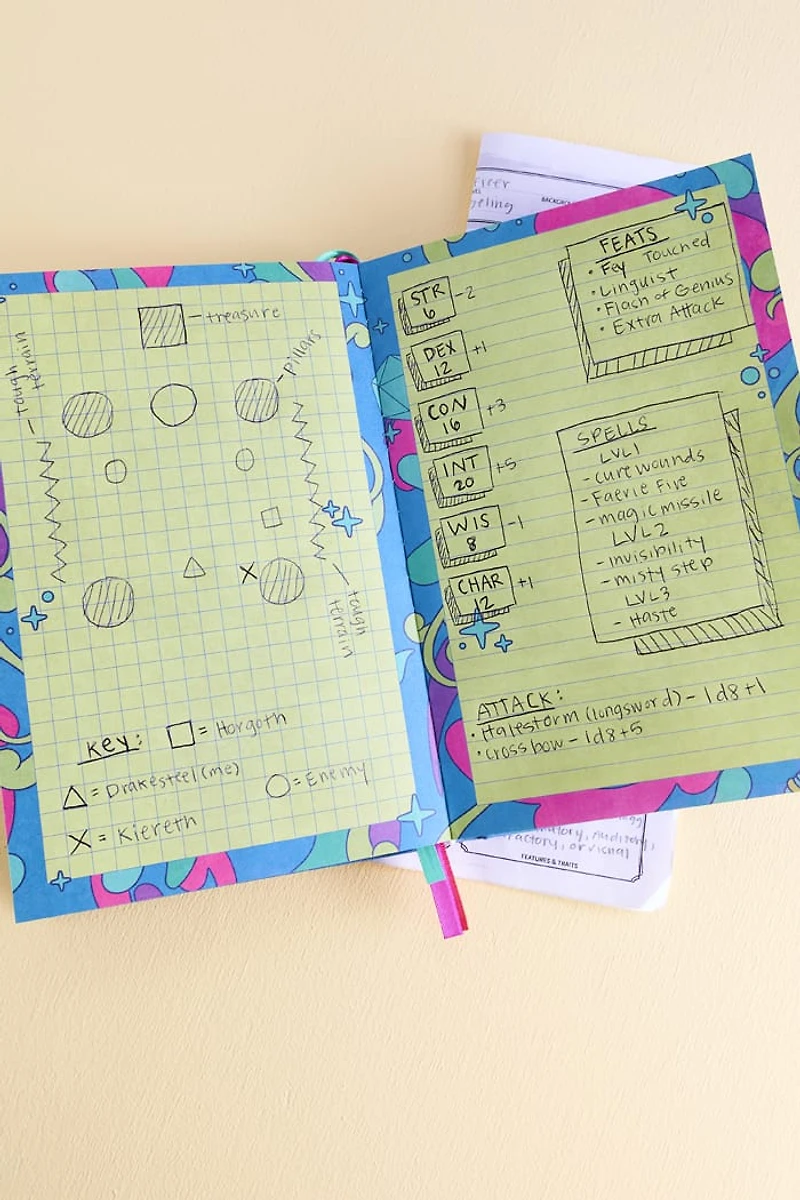 treasure
Pillars
tough
terrain
tough
terrain
Key: □ = Horgoth
△ = Drakesteel (me)
○ = Enemy
X = Kiereth
STR
6
-2
DEX
12
+1
CON
16
+3
INT
20
+5
WIS
8
-1
CHAR
12
+1
FEATS
• Fey Touched
• Linguist
• Flash of Genius
• Extra Attack
SPELLS
LVL1
- cure wounds
- Faerie Fire
- magic missile
LVL2
- invisibility
- misty step
LVL3
- Haste
ATTACK:
• Halestorm (longsword) - 1d8+1
• crossbow - 1d8+5
or visual
FEATURES & TRAITS